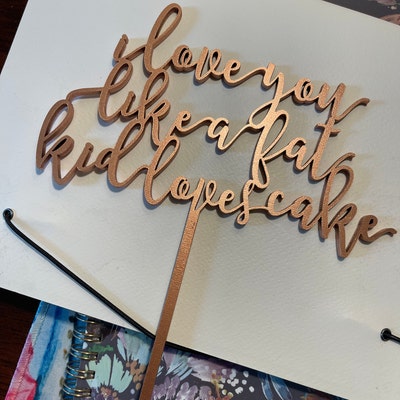 i love you
like a fat
kid loves cake